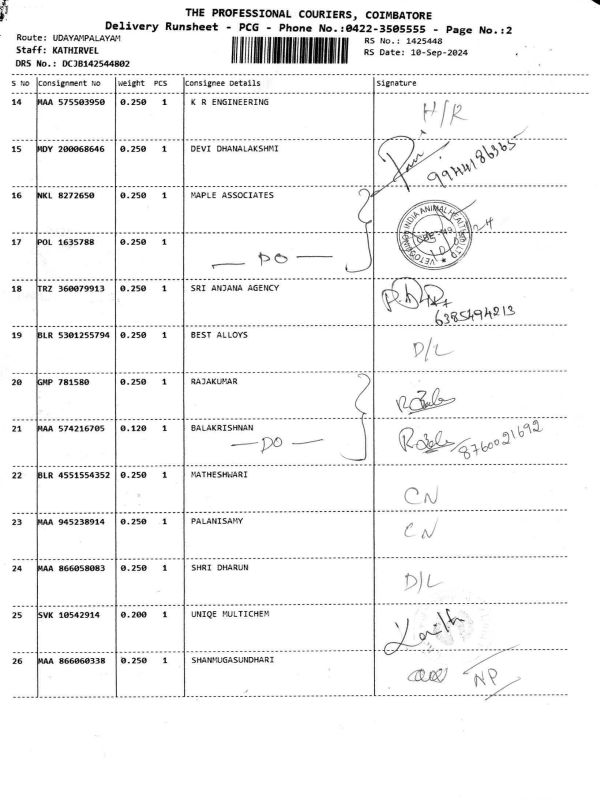 THE PROFESSIONAL COURIERS, COIMBATORE
Delivery Runsheet - PCG - Phone No.:0422-3505555 - Page No.:2
Route: UDAYAMPALAYAM
RS No.: 1425448
Staff: KATHIRVEL
RS Date: 10-Sep-2024
DRS No.: DCJB142544802
S No Consignment No Weight PCS Consignee Details Signature
14 MAA 575503950 0.250 1 K R ENGINEERING H/R
15 MDY 200068646 0.250 1 DEVI DHANALAKSHMI 9944186365
16 NKL 8272650 0.250 1 MAPLE ASSOCIATES
17 POL 1635788 0.250 1
— DO —
18 TRZ 360079913 0.250 1 SRI ANJANA AGENCY
6385494213
19 BLR 5301255794 0.250 1 BEST ALLOYS D/L
20 GMP 781580 0.250 1 RAJAKUMAR
21 MAA 574216705 0.120 1 BALAKRISHNAN 8760021692
— DO —
22 BLR 4551554352 0.250 1 MATHESHWARI CN
23 MAA 945238914 0.250 1 PALANISAMY CN
24 MAA 866058083 0.250 1 SHRI DHARUN D/L
25 SVK 10542914 0.200 1 UNIQE MULTICHEM
26 MAA 866060338 0.250 1 SHANMUGASUNDHARI NP